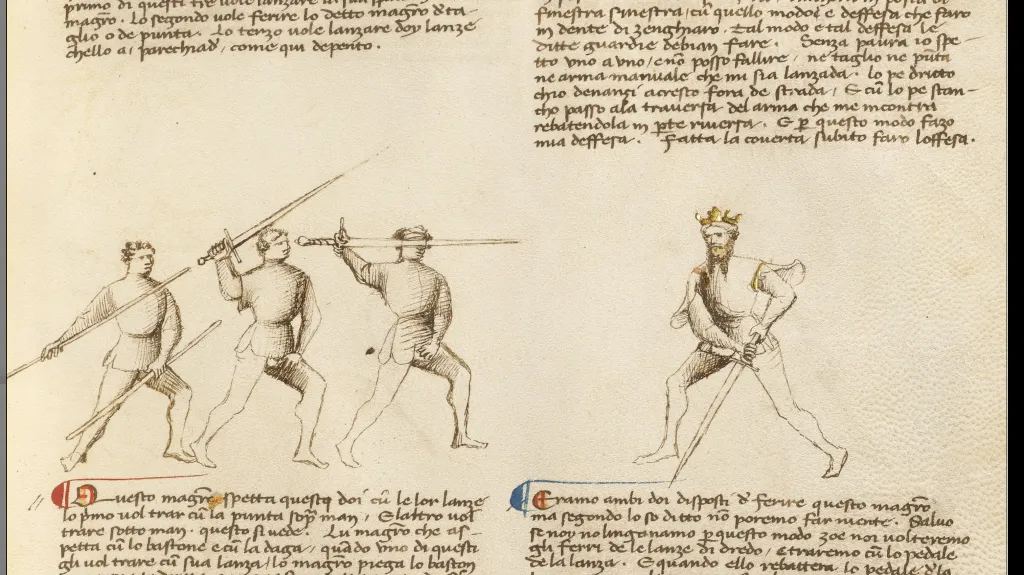 primo di questi tre vole lanzare la sua
magro. Lo segondo vole ferire lo detto magro d'ta-
glio o de punta. Lo terzo vole lanzare doy lanze
chello a parechiad, come qui depento.
finestra sinestra, cu quello modo e deffesa che faro
in dente di zenghiaro. Tal modo e tal deffesa le
ditte guardie debian fare. Senza paura io spe-
tto uno a uno, e no posso fallire, ne taglio ne punta
ne arma manuale che mi sia lanzada. lo pe dritto
chio denanzi acresto fora de strada, E cu lo pe stan-
cho passo ala traversa del arma che me incontra
rebatendola in pte riversa. E p questo modo fazo
mia deffesa. Fatta la coverta subito faro loffesa.
Questo magro spetta questi doi cu le lor lanze
lo pmo vol trar cu la punta sop man, E l'altro vol
trare sotto man. questo si vede. Lu magro che as-
petta cu lo bastone e cu la daga, quado uno di questi
gli vol trare cu sua lanza, lo magro piega lo baston
Eramo ambi doi disposti d' ferire questo magro,
ma segondo lo so ditto no poremo far niente. Salvo
se noy no linganamo p questo modo zoe noi volteremo
gli ferri de le lanze di dredo, e traremo cu lo pedale
de la lanza. E quando ello rebattera lo pedale d'la